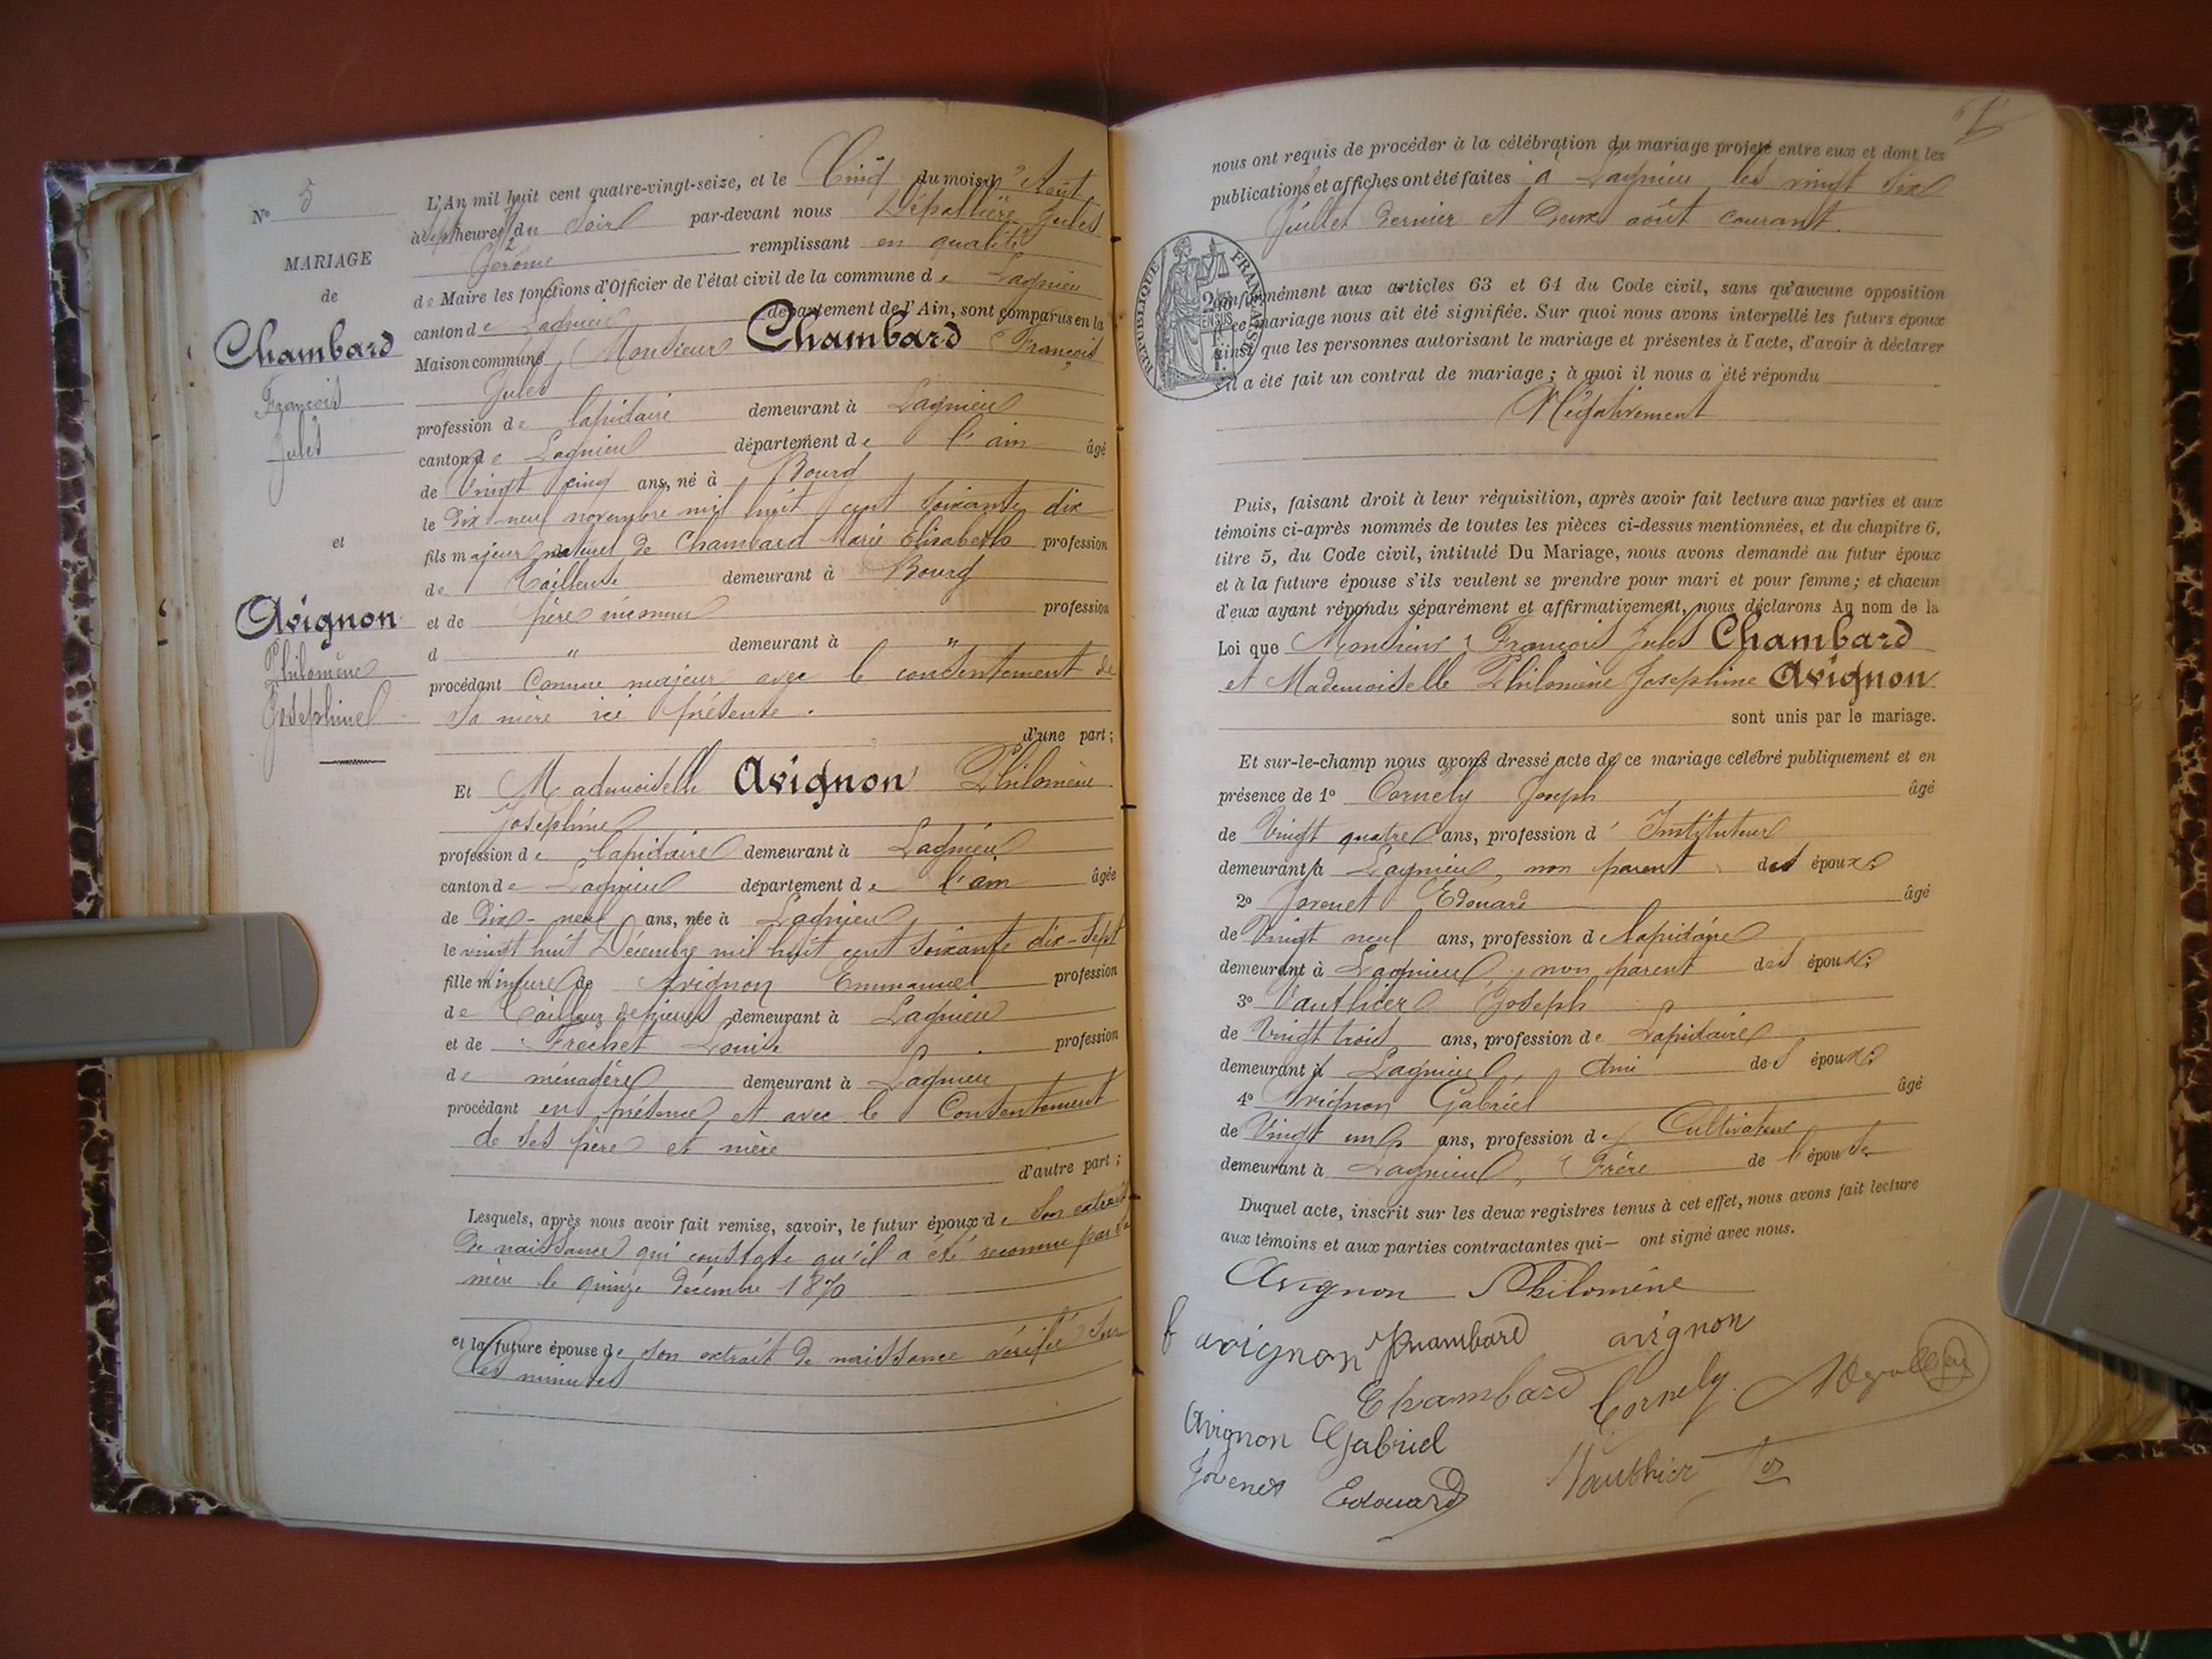 N° 5
MARIAGE
de
Chambard
François
Jules
et
Avignon
Philomène
Joséphine
L'An mil huit cent quatre-vingt-seize, et le Cinq du mois d'Août
à heures du Soir par-devant nous Dépallière Jules
Jérôme remplissant en qualité
de Maire les fonctions d'Officier de l'état civil de la commune de Lagnieu
canton de Lagnieu département de l'Ain, sont comparus en la
Maison commune, Monsieur Chambard François
Jules
profession de lapidaire demeurant à Lagnieu
canton de Lagnieu département de l'ain âgé
de Vingt cinq ans, né à Bourg
le dix neuf novembre mil huit cent soixante dix
fils majeur naturel de Chambard Marie Elisabeth profession
de Tailleuse demeurant à Bourg
et de père inconnu profession
d " demeurant à "
procédant Comme majeur avec le consentement de
sa mère ici présente.
d'une part;
Et Mademoiselle Avignon Philomène
Joséphine
profession de lapidaire demeurant à Lagnieu
canton de Lagnieu département de l'ain âgée
de Dix-neuf ans, née à Lagnieu
le vingt huit Décembre mil huit cent soixante dix-sept
fille mineure de Avignon Emmanuel profession
de Tailleur de pierres demeurant à Lagnieu
et de Frechet Louise profession
de ménagère demeurant à Lagnieu
procédant en présence et avec le Consentement
de ses père et mère
d'autre part;
Lesquels, après nous avoir fait remise, savoir, le futur époux de son extrait
de naissance qui constate qu'il a été reconnu par sa
mère le quinze décembre 1870
et la future épouse de son extrait de naissance vérifié sur
les minutes
nous ont requis de procéder à la célébration du mariage projeté entre eux et dont les
publications et affiches ont été faites à Lagnieu les vingt six
Juillet dernier et deux août courant.
RÉPUBLIQUE FRANÇAISE
Conformément aux articles 63 et 64 du Code civil, sans qu'aucune opposition
à ce mariage nous ait été signifiée. Sur quoi nous avons interpellé les futurs époux
ainsi que les personnes autorisant le mariage et présentes à l'acte, d'avoir à déclarer
s'il a été fait un contrat de mariage; à quoi il nous a été répondu
Négativement
Puis, faisant droit à leur réquisition, après avoir fait lecture aux parties et aux
témoins ci-après nommés de toutes les pièces ci-dessus mentionnées, et du chapitre 6,
titre 5, du Code civil, intitulé Du Mariage, nous avons demandé au futur époux
et à la future épouse s'ils veulent se prendre pour mari et pour femme; et chacun
d'eux ayant répondu séparément et affirmativement, nous déclarons Au nom de la
Loi que Monsieur François Jules Chambard
et Mademoiselle Philomène Joséphine Avignon
sont unis par le mariage.
Et sur-le-champ nous avons dressé acte de ce mariage célébré publiquement et en
présence de 1° Cornely Joseph âgé
de Vingt quatre ans, profession d'Instituteur
demeurant à Lagnieu, non parent des époux;
2° Jovenet Edouard âgé
de Vingt neuf ans, profession de lapidaire
demeurant à Lagnieu, non parent des époux;
3° Vauthier Joseph
de Vingt trois ans, profession de Lapidaire
demeurant à Lagnieu, Ami des époux;
4° Avignon Gabriel âgé
de Vingt un ans, profession de Cultivateur
demeurant à Lagnieu, Frère de l'épouse
Duquel acte, inscrit sur les deux registres tenus à cet effet, nous avons fait lecture
aux témoins et aux parties contractantes qui— ont signé avec nous.
Avignon Philomène
avignon Chambard avignon
Chambard Cornely
Avignon Gabriel
Jovenet Edouard Vauthier